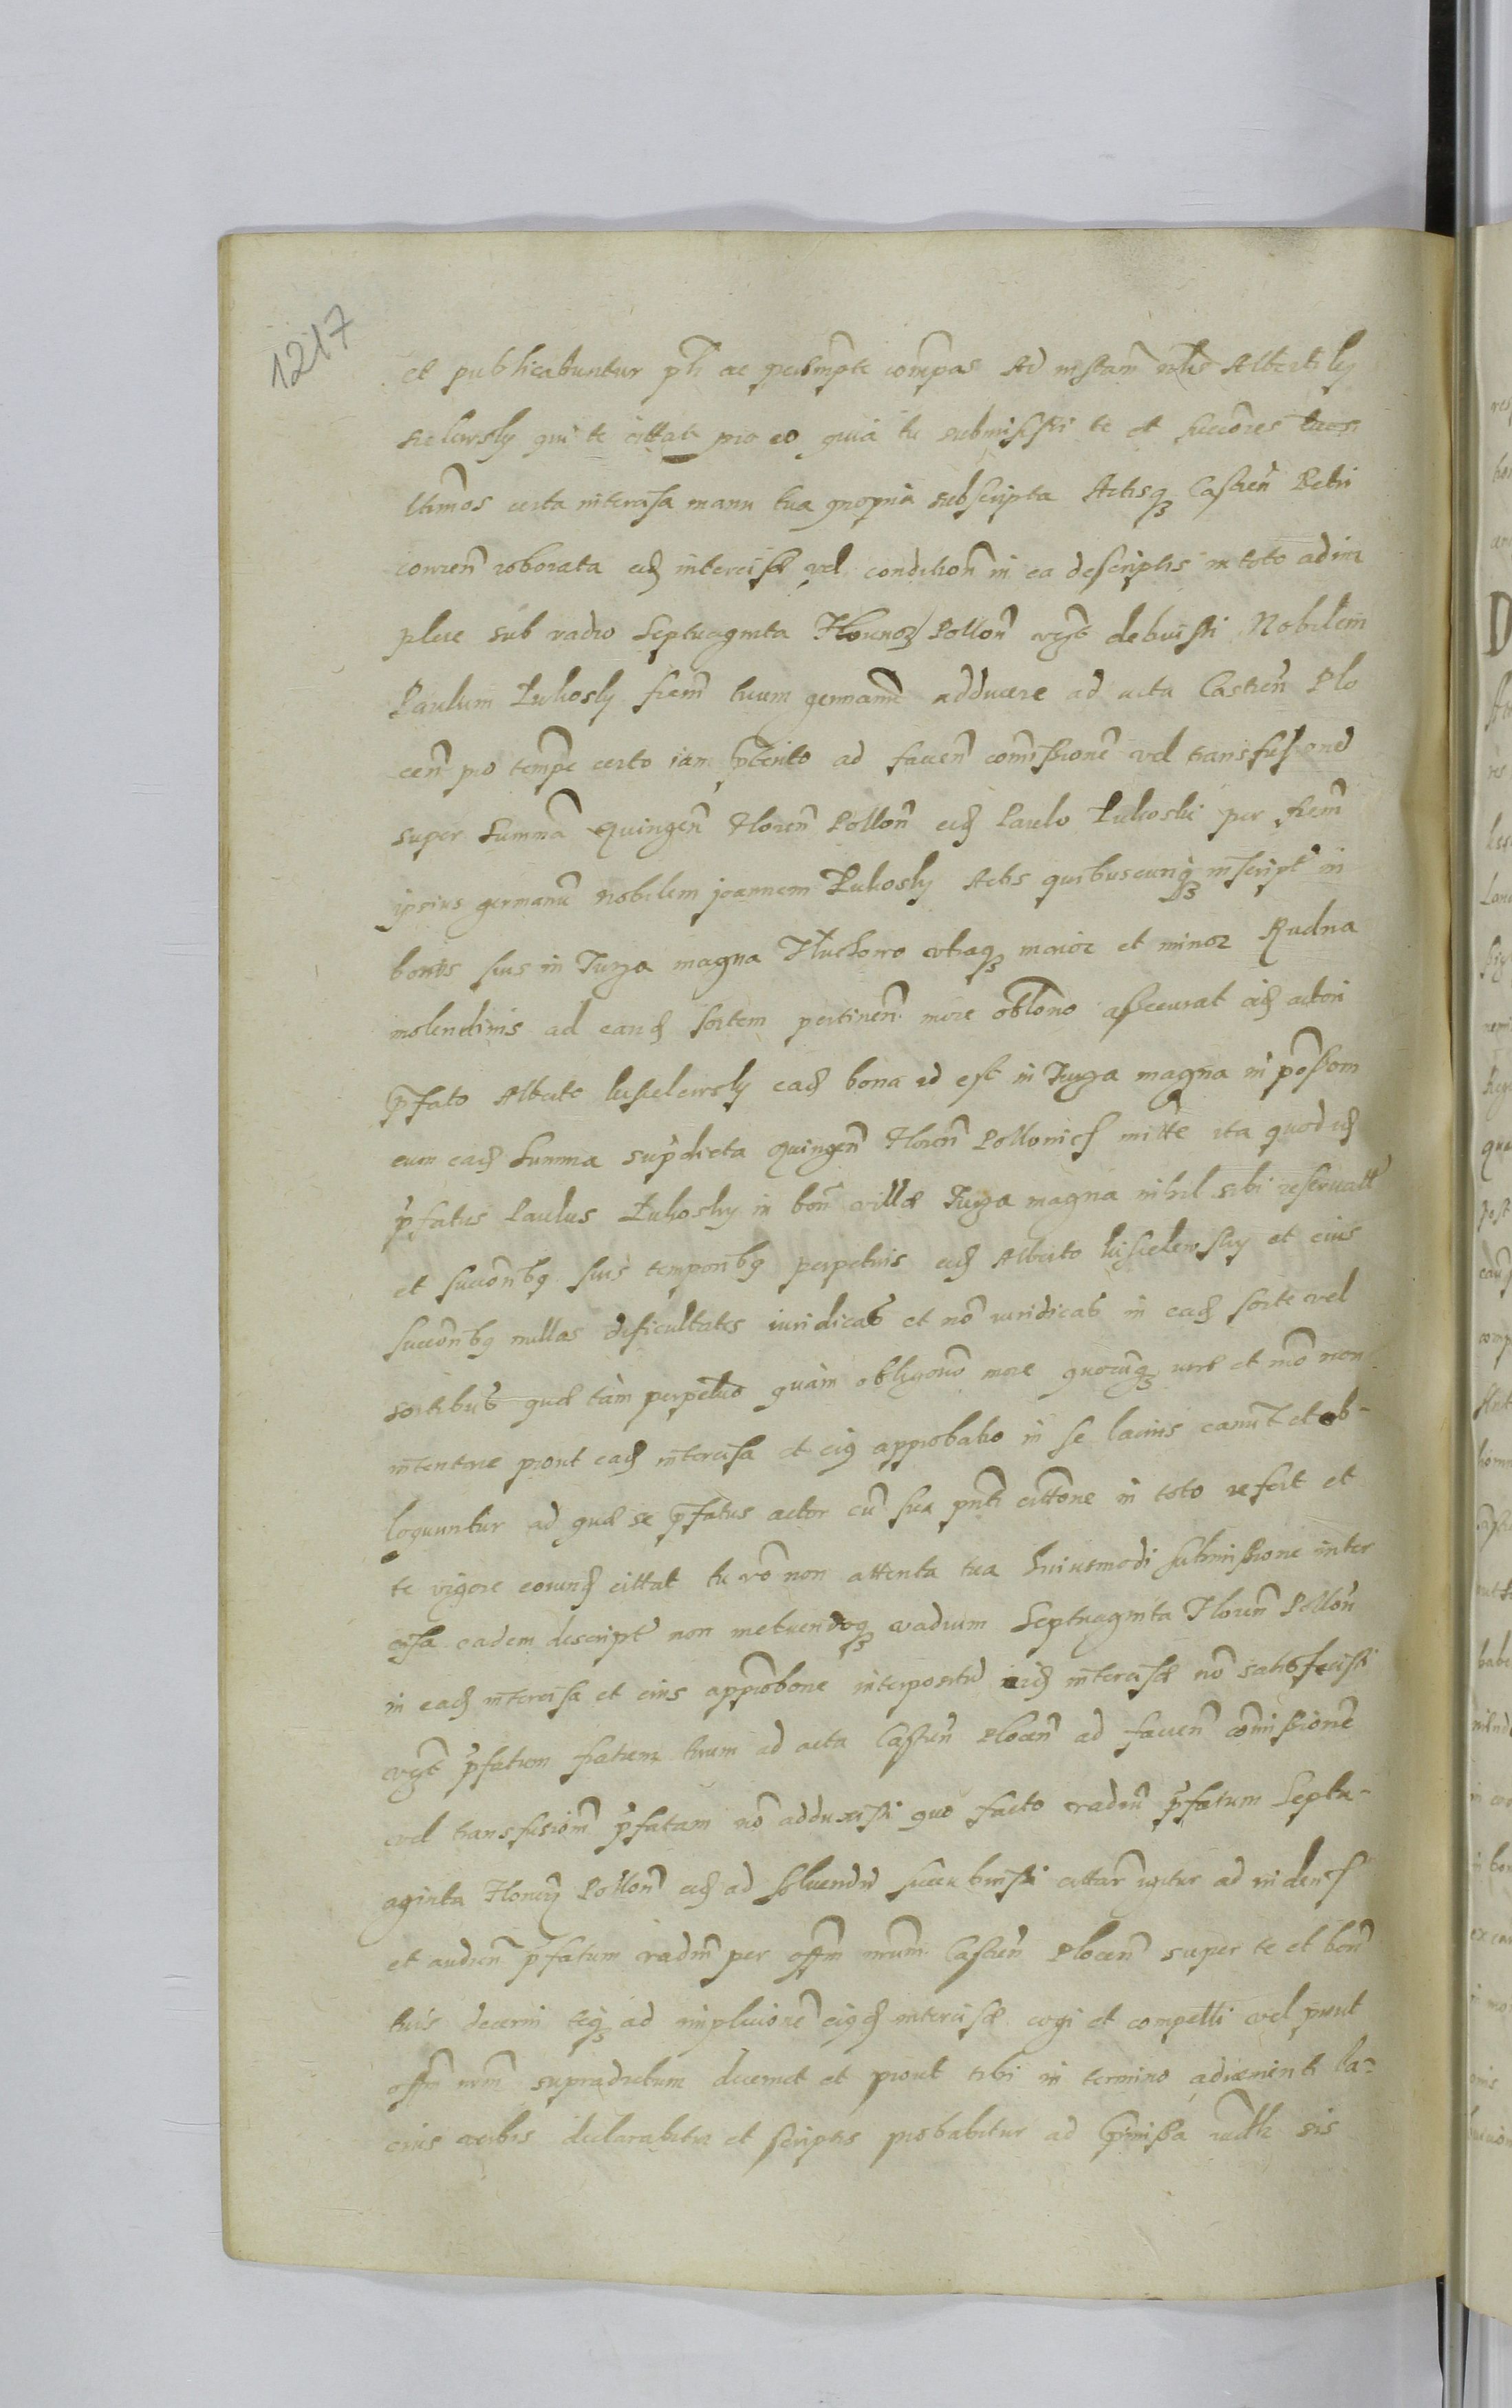 1217
et publicabuntur plr ac perempte compas Ad instam nlis Alberti
sielewsky qui te cittat pro eo quia tu submisisti te et succores tuos
ltimos certa intercisa manu tua propria subscripta Actisq Castren Petri
covien roborata eid intercisæ vel condition in ea descriptis in toto adim
plere sub vadio Septuaginta Florenor Pollon vigt debuisti Nobilem
Paulum Lukosky frem tuum germanu adducere ad acta Castren Plo
cen pro tempe certo iam pterito ad facien comissione vel transfusione
super Summa Quingen Floren Pollon eid Paulo Lukoski per frem
ipsius germanu nobilem joannem Lukosky Actis quibuscunq inscript in
bonis suis in Turza magna Kuchowo utraq maior et minor Rudna
molendinis ad eand sortem pertinen more obliono assecurat eid actori
pfato Alberto kisielewsky ead bona id est in Turza magna in possom
cum ead Summa supdicta Quingen Floren Pollonics mitte ita quod id
pfatus Paulus Lukosky in bon villæ Turza magna nihil sibi reservatt
et succonibq suis temporibq perpetuis eid Alberto kisielewsky et eius
succonibq nullas dificultates iuridicas et no iuridicas in ead sorte vel
sortibus quæ tam perpetuo quàm obligono more quocunq iure et mo non
intentare prout ead intercisa et eiq approbatio in se lacius canunt et ob-
loquuntur ad quæ se pfatus actor cu sua pnti cittone in toto refert et
te vigore eorund cittat tu vo non attenta tua huiusmodi submissione inter
cisa eadem descript non metuendoq vadium Septuaginta Floren Pollon
in ead intercisa et eius approbone interpositu eid intercisæ no satisfecisti
vigt pfatum fratrem tuum ad acta Castren Plocen ad facien comissione
vel transfusiom pfatam no adduxisti quo facto vadiu pfatum Septu-
aginta Floren Pollon eid ad solvendu succubuisti cittar igitur ad videns
et audien pfatum vadiu per offm nrum Castren Plocen super te et bon
tuis decerni teq ad implecione eiqd intercisæ cogi et compelli vel prout
offm nrm supradictum decernet et prout tibi in termino adveniente la-
cius verbis declarabitur et scriptis probabitur ad pmissa iudlr sis